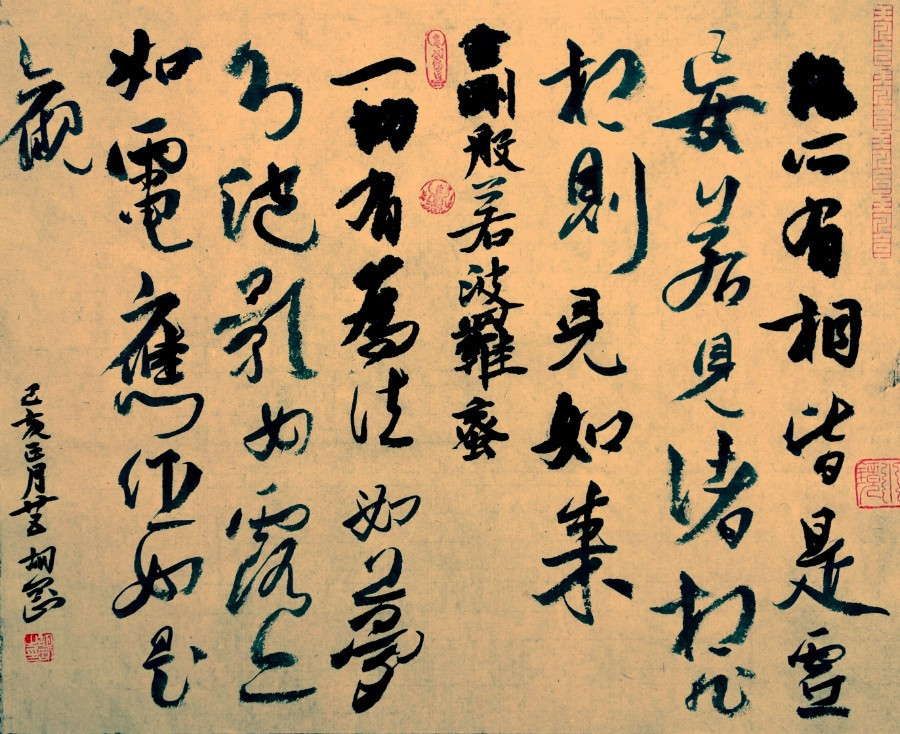 凡所有相皆是虛
妄若見諸相非
相則見如來
金剛般若波羅蜜
一切有爲法如夢
幻泡影如露亦
如電應作如是
觀
己亥正月廿五胡